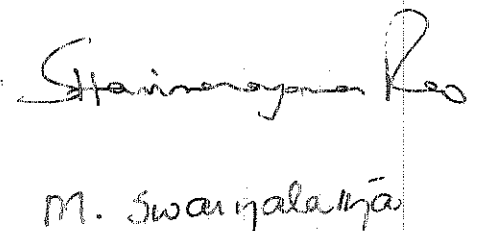 SHarinarayana Rao
M. Swarnalatha